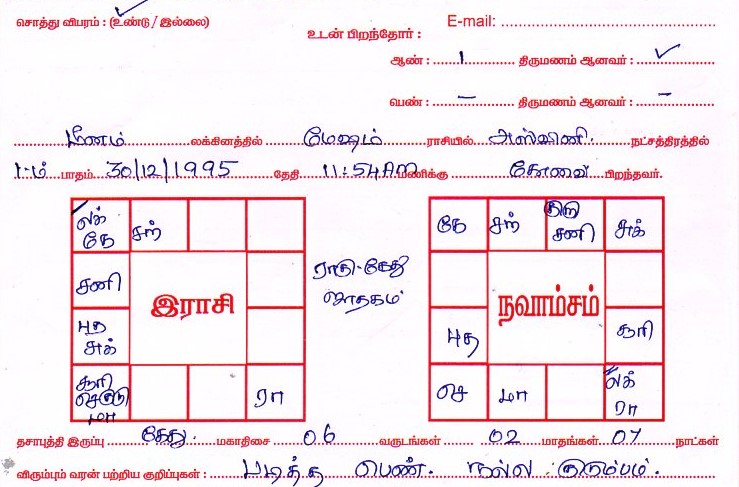 சொத்து விபரம் : (உண்டு / இல்லை)
E-mail:
உடன் பிறந்தோர் :
ஆண் : 1 திருமணம் ஆனவர் : ✓
பெண் : – திருமணம் ஆனவர் : –
மீனம் லக்கினத்தில் மேஷம் ராசியில் அஸ்வினி நட்சத்திரத்தில்
1-ம் பாதம் 30/12/1995 தேதி 11:54AM மணிக்கு கோவை பிறந்தவர்.
லக் கே சந்
சனி
இராசி
புத சுக்
சூரி செ குரு மா
ரா
ராகு-கேது
ஜாதகம்
கே சந் குரு சனி சுக்
நவாம்சம்
புத
சூரி
செ மா லக் ரா
தசாபுத்தி இருப்பு கேது மகாதிசை 06 வருடங்கள் 02 மாதங்கள் 07 நாட்கள்
விரும்பும் வரன் பற்றிய குறிப்புகள் : படித்த பெண். நல்ல குடும்பம்.